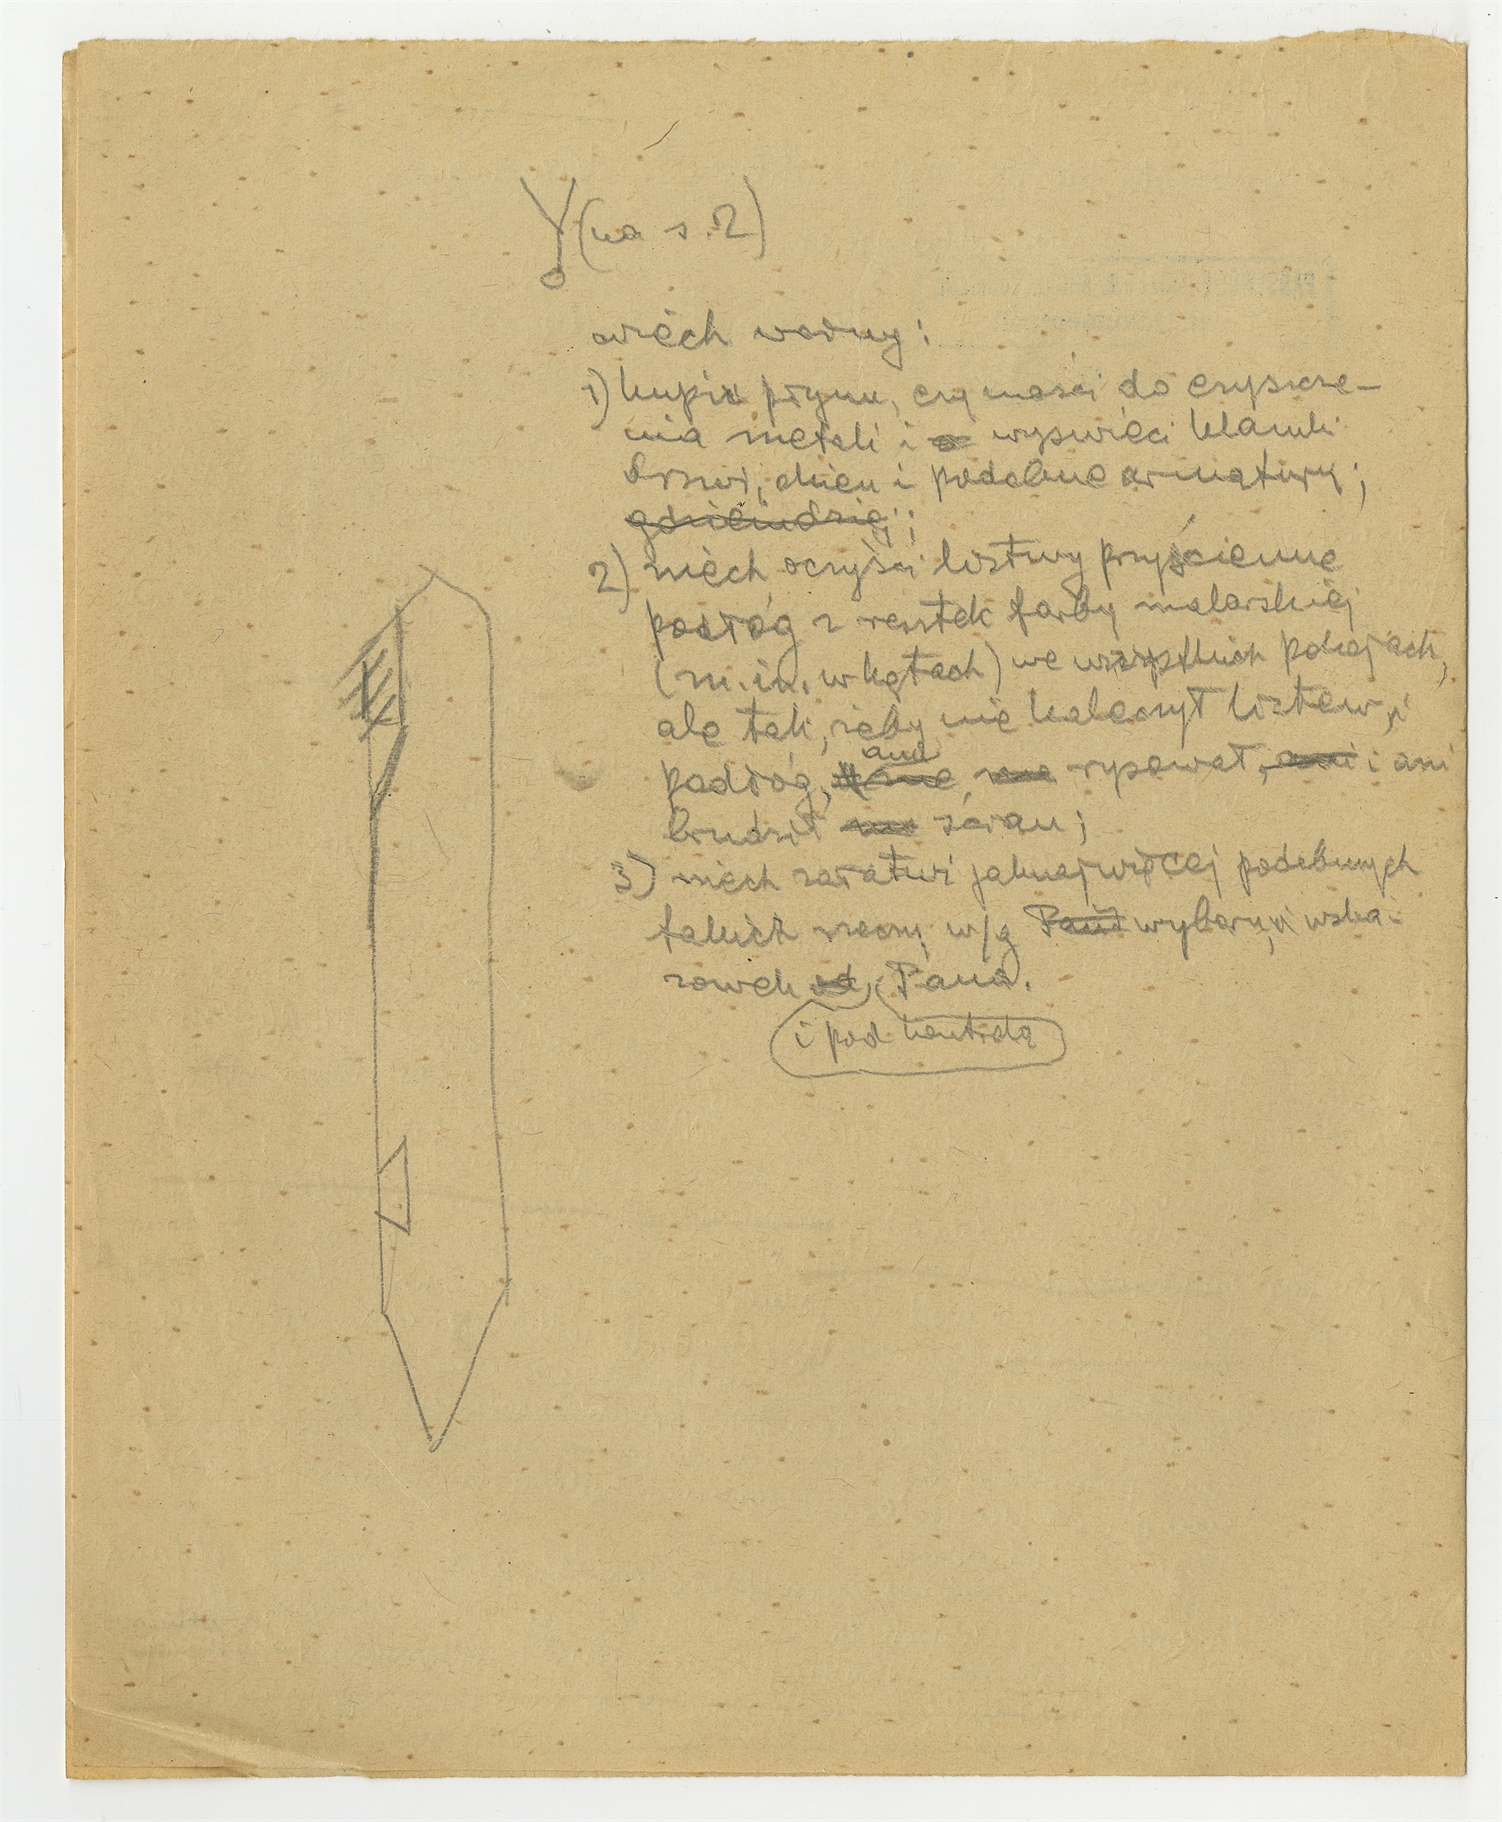 (na s. 2)
niech woźny:
1) kupi płynu, czy maści do czyszcze-
nia metali i wyświeci klamki
drzwi, okien i podobne armatury;
gdzieindziej;
2) niech oczyści listwy przyścienne
podłóg z resztek farby malarskiej
(m.in. w kątach) we wszystkich pokojach,
ale tak, żeby nie kaleczył listew i
podłóg, ani rysował, ani i ani
brudził ścian;
3) niech załatwi jaknajwięcej podobnych
takich rzeczy w/g Pana wyboru i wska-
zówek od Pana.
i pod kontrolą